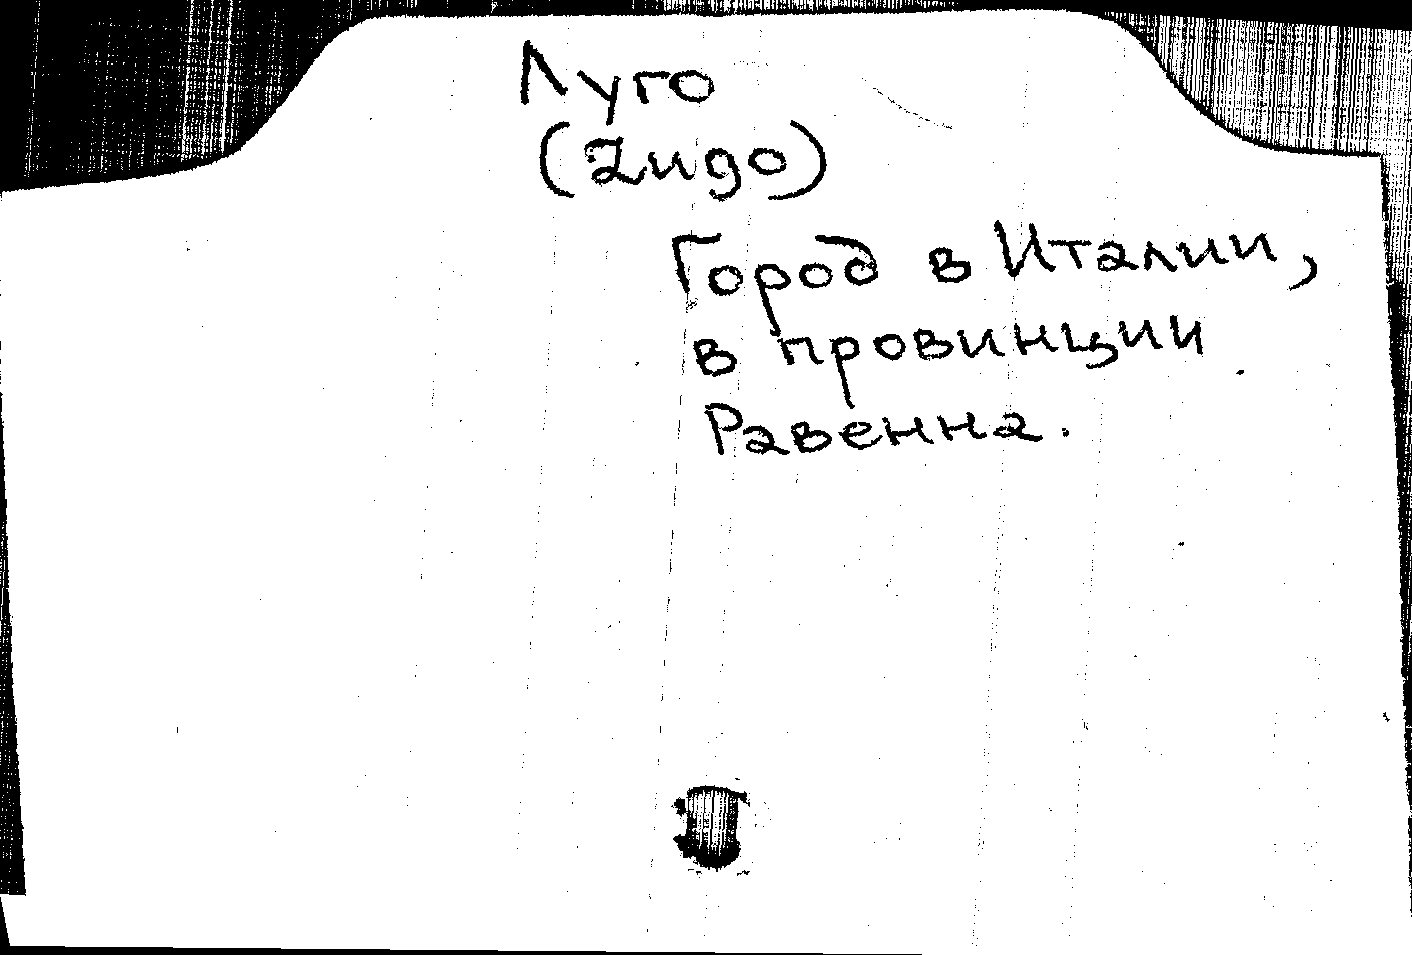 Луго
(Lugo)
Город в Италии,
в провинции
Равенна.